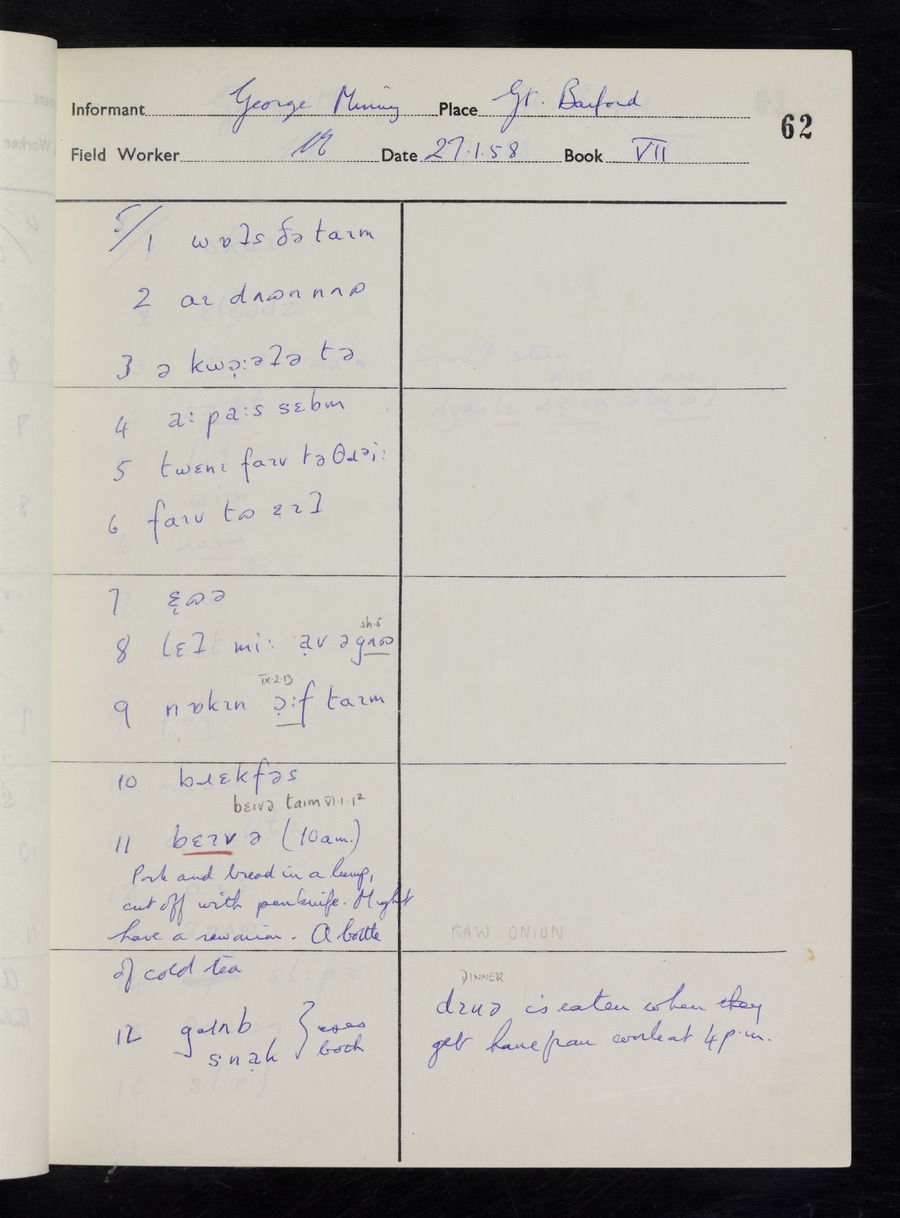 Informant George Place Gt. Barford
62
Field Worker Date 27.1.58 Book VII
5/1 wɒʔs ðə taɪm
2 aɪ dʌʊn nʌʊ
3 ə kwə̣:əʔə tə
4 a: pa:s sɛbm
5 twɛnɪ faɪv tə θɹəi:
6 faɪv tʊ ɛɪʔ
7 ɛ̣ʊə
sh.5
8 lɛʔ mi: ạv əgʌʊ
IX.2.13
9 nɒkɪn ə̣:f taɪm
10 bɹɛkfəs
bɛɪvə taɪm VI.1.12
11 bɛɪvə (10am.)
Pork and bread in a lump,
cut off with penknife. Might
have a raw onion. A bottle
RAW ONION
of cold tea
DINNER
12 gɹʌb
snạk } uses both
dɪnə is eaten when they
get home from work at 4 p.m.